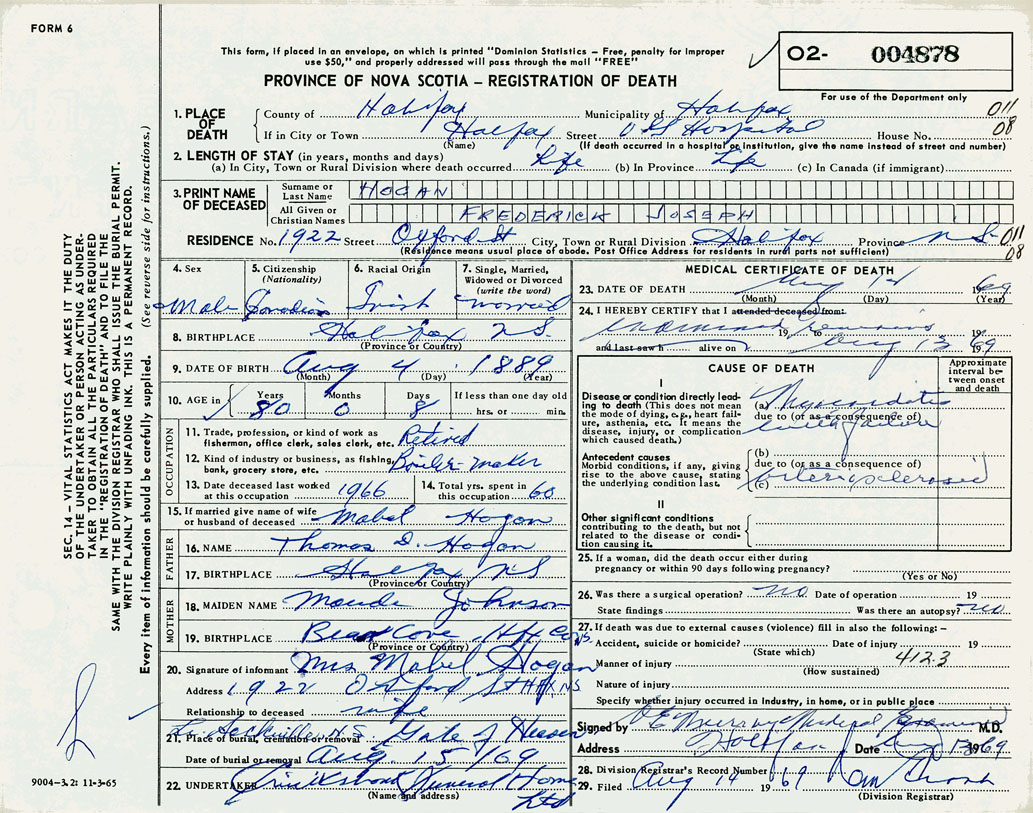 FORM 6
This form, if placed in an envelope, on which is printed "Dominion Statistics – Free, penalty for improper
use $50," and properly addressed will pass through the mail "FREE"
02- 004878
PROVINCE OF NOVA SCOTIA – REGISTRATION OF DEATH
For use of the Department only
1. PLACE OF DEATH
County of Halifax Municipality of Halifax 011
If in City or Town Halifax Street Hospital House No. 08
(Name) (If death occurred in a hospital or institution, give the name instead of street and number)
2. LENGTH OF STAY (in years, months and days)
(a) In City, Town or Rural Division where death occurred Life (b) In Province Life (c) In Canada (if immigrant)
3. PRINT NAME OF DECEASED
Surname or Last Name HOGAN
All Given or Christian Names FREDERICK JOSEPH
RESIDENCE No. 1922 Street Oxford St City, Town or Rural Division Halifax Province N.S. 011
(Residence means usual place of abode. Post Office Address for residents in rural parts not sufficient) 08
4. Sex
Male
5. Citizenship
(Nationality)
Canadian
6. Racial Origin
Irish
7. Single, Married,
Widowed or Divorced
(write the word)
Married
8. BIRTHPLACE Halifax N.S.
(Province or Country)
9. DATE OF BIRTH Aug 4 1889
(Month) (Day) (Year)
10. AGE in
Years Months Days If less than one day old
80 0 8 hrs. or min.
OCCUPATION
11. Trade, profession, or kind of work as
fisherman, office clerk, sales clerk, etc. Retired
12. Kind of industry or business, as fishing,
bank, grocery store, etc. Boiler-maker
13. Date deceased last worked
at this occupation 1966
14. Total yrs. spent in
this occupation 60
15. If married give name of wife
or husband of deceased Mabel Hogan
FATHER
16. NAME Thomas D. Hogan
17. BIRTHPLACE Halifax N.S.
(Province or Country)
MOTHER
18. MAIDEN NAME Maude Johnson
19. BIRTHPLACE Bear Cove Hfx Co N.S.
(Province or Country)
20. Signature of informant Mrs Mabel Hogan
Address 1922 Oxford St Hfx NS
Relationship to deceased wife
21. Place of burial, cremation or removal Sackville N.S. Gate of Heaven
Date of burial or removal Aug. 15/69
22. UNDERTAKER Funeral Home
(Name and address) Ltd
MEDICAL CERTIFICATE OF DEATH
23. DATE OF DEATH Aug 1969
(Month) (Day) (Year)
24. I HEREBY CERTIFY that I attended deceased from:
examined 19 to remains 19
and last saw h alive on Aug 13 1969
CAUSE OF DEATH
Approximate
interval be-
tween onset
and death
I
Disease or condition directly lead-
ing to death (This does not mean
the mode of dying, e.g., heart fail-
ure, asthenia, etc. It means the
disease, injury, or complication
which caused death.)
(a) Myocarditis
due to (or as a consequence of)
with failure
Antecedent causes
Morbid conditions, if any, giving
rise to the above cause, stating
the underlying condition last.
(b)
due to (or as a consequence of)
(c) arteriosclerosis
II
Other significant conditions
contributing to the death, but not
related to the disease or condi-
tion causing it.
25. If a woman, did the death occur either during
pregnancy or within 90 days following pregnancy?
(Yes or No)
26. Was there a surgical operation? no Date of operation 19
State findings Was there an autopsy? no
27. If death was due to external causes (violence) fill in also the following: –
Accident, suicide or homicide? Date of injury 19
(State which) 412.3
Manner of injury
(How sustained)
Nature of injury
Specify whether injury occurred in Industry, in home, or in public place
Signed by Medical Examiner M.D.
Address Halifax Date Aug 13 1969
28. Division Registrar's Record Number
29. Filed Aug 14 1969
(Division Registrar)
SEC. 14 – VITAL STATISTICS ACT MAKES IT THE DUTY
OF THE UNDERTAKER OR PERSON ACTING AS UNDER-
TAKER TO OBTAIN ALL THE PARTICULARS REQUIRED
IN THE "REGISTRATION OF DEATH" AND TO FILE THE
SAME WITH THE DIVISION REGISTRAR WHO SHALL ISSUE THE BURIAL PERMIT.
WRITE PLAINLY WITH UNFADING INK. THIS IS A PERMANENT RECORD.
Every item of information should be carefully supplied. (See reverse side for instructions.)
9004–3.2: 11-3-65